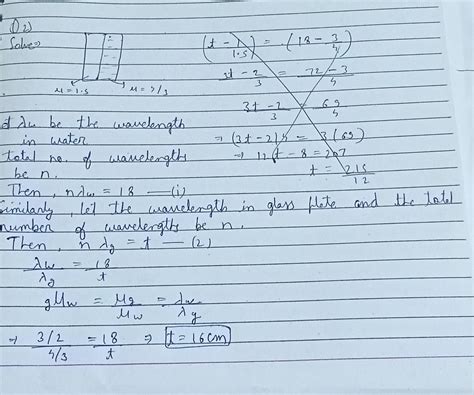 Q2)
Solve →
μ = 1.5
(t - 1/1.5) = (18 - 3/4)
3t - 2/3 = 72 - 3/4
3t - 2/3 = 69/4
→ (3t - 2)4 = 3(69)
→ 12t - 8 = 207
t = 215/12
λw be the wavelength
in water
total no. of wavelengths
be n.
Then, nλw = 18 — (i)
Similarly, let the wavelength in glass plate and the total
number of wavelengths be n.
Then, n λg = t — (2)
λw/λg = 18/t
gμw = μg/μw = λw/λg
→ (3/2)/(4/3) = 18/t → t = 16cm